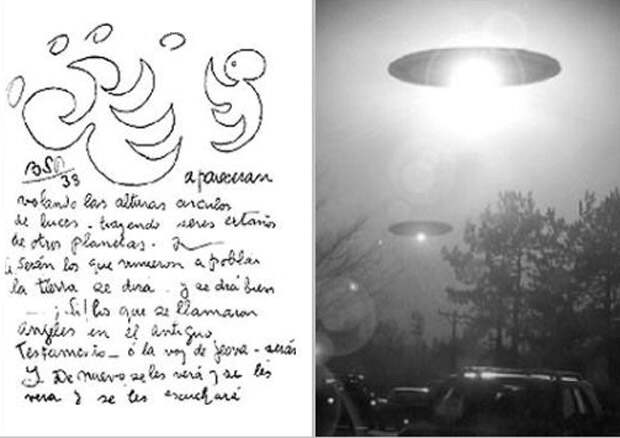 BSP
38 apareceran
volando las alturas circulos
de luces - trayendo seres extraños
de otros planetas.
Serán los que vinieron a poblar
la tierra se dirá - y se dirá bien
- ¡Si! los que se llamaron
angeles en el antiguo
Testamento - ó la voz de Jeova -
De nuevo se les verá y se les
vera y se les escuchará